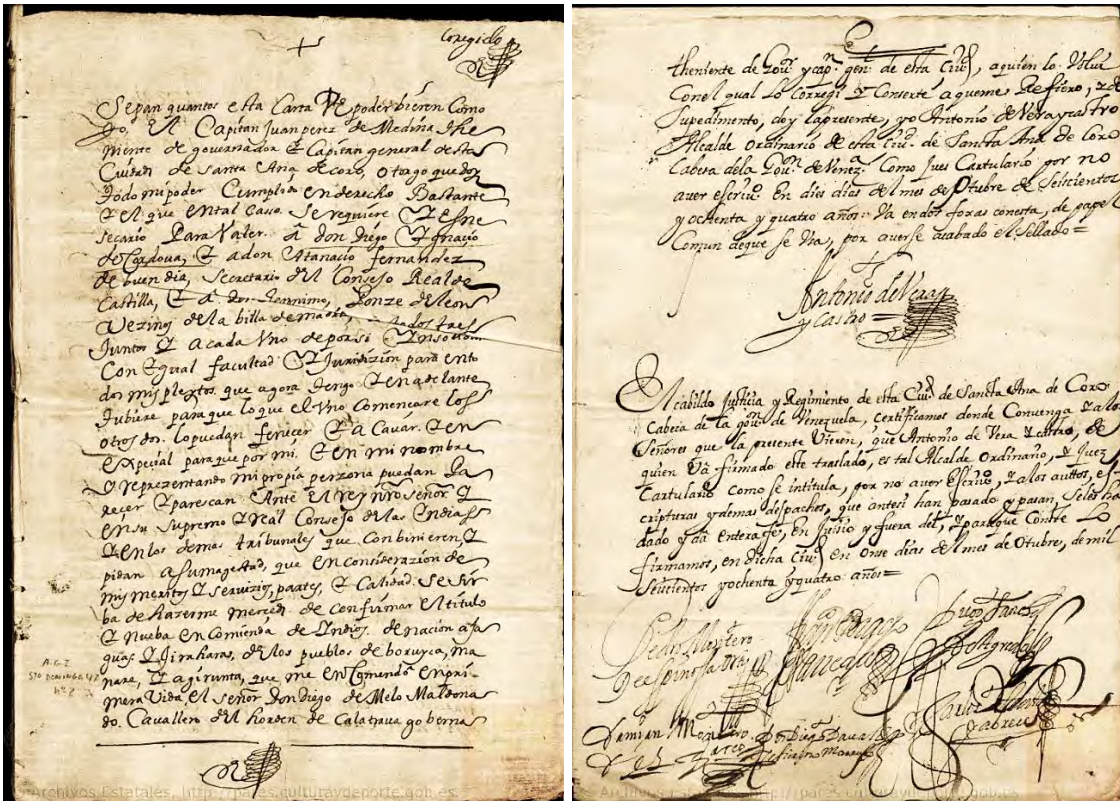 Coregido
Sepan quantos esta Carta De poder bieren Como
yo, El Capitan Juan perez de Medina the
niente de governador & Capitan general desta
Ciudad de santa Ana de coro, otorgo que doy
todo mi poder Cumplido en derecho Bastante
& el que en tal Caso. Se requiere & es ne
sesario Para Valer. A don Diego Ygnacio
de Cordova, & a don Atanacio fernandez
de buendia, secretario del Consejo Real de
Castilla, & a Don Geronimo, Ponze de leon
Vezinos de la billa de madrid, a todos tres
Juntos & a cada Uno de por si & insolidum
Con Ygual facultad & Juridizion para en to
dos mis pleytos. que agora tengo & en adelante
tubiere para que lo que el Uno comencare los
otros dos. lo puedan fenecer & a Cavar. & en
Especial para que por mi. & en mi nombre
representando mi propia perzona puedan Pa
recer & parescan Ante El rey nro señor &
en su Supremo & Real Consejo de las Yndias
& en los demas tribunales que Conbinieren &
pidan a su magestad, que en considerazion de
mis meritos & servizios, partes, & Calidad. Se sir
ba de hazerme merced de confirmar el titulo
& nueba en Comienda de Yndios. de nacion aja
guas & Jiraharas, de los pueblos de
nare, & que me en primera
mera Vida, el señor Don Diego de Melo Maldona
do. Cavallero del horden de Calatrava goberna
A.G.I.
Sto Domingo
Nº 2
theniente de Gour. y capn. genl. de esta Ciud, a quien lo Volvi
Con el qual Lo Corregi & Conserté a que me Refiero, & de
Supedimento, doy la presente, yo Antonio de Vera y castro
Alcalde Ordinario de esta Ciud. de Sancta Ana de Coro
Cabesa de la Gouon. de Veneza. Como Jues Cartulario por no
aver escriuo. En dies dias del mes de Otubre de Seiscientos
y ochenta y quatro años. Va en dos foxas con esta, de papel
Comun de que se Usa, por averse acabado el Sellado=
Antonio de Vera
y Castro
El cabildo Justicia y Regimiento de esta Ciud. de Sancta Ana de Coro
Cabesa de la gouon. de Venezuela, certificamos donde Convenga & a los
Señores que la presente Vieren, que Antonio de Vera & castro, de
quien Va firmado este traslado, es tal Alcalde Ordinario, & Juez
Cartulario como se intitula, por no aver escriuo, & a los auttos, es
cripturas y demas despachos, que antesi han pasado y pasan, Seles ha
dado y da entera fe, en Juisio y fuera del, & para que Conste Lo
firmamos, en dicha Ciud en onse dias del mes de Otubre, de mil
Seiscientos y ochenta y quatro años=
Archivos Estatales, http://pares.culturaydeporte.gob.es